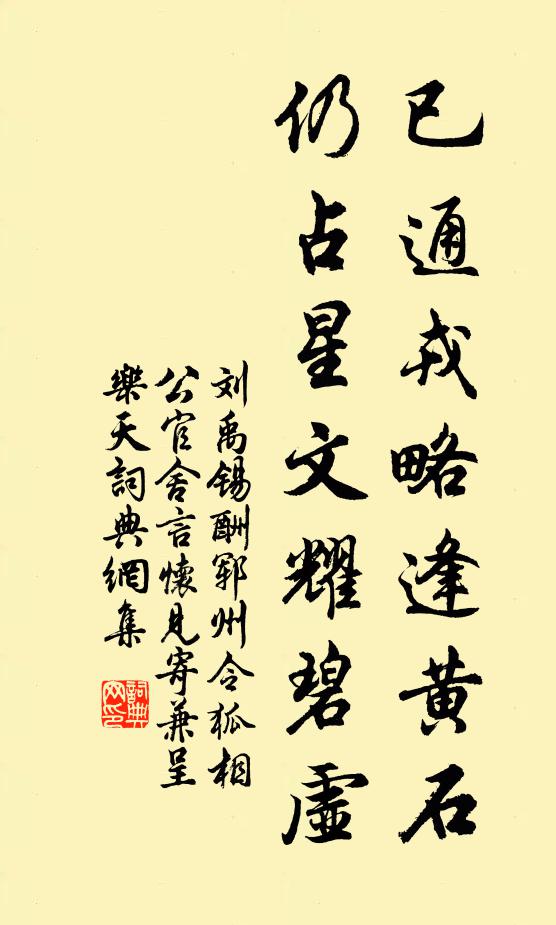 已通戎略逢黄石
仍占星文耀碧虛
刘禹锡酬郓州令狐相
公官舍言懷見寄兼呈
樂天詞典網集
詞典网印